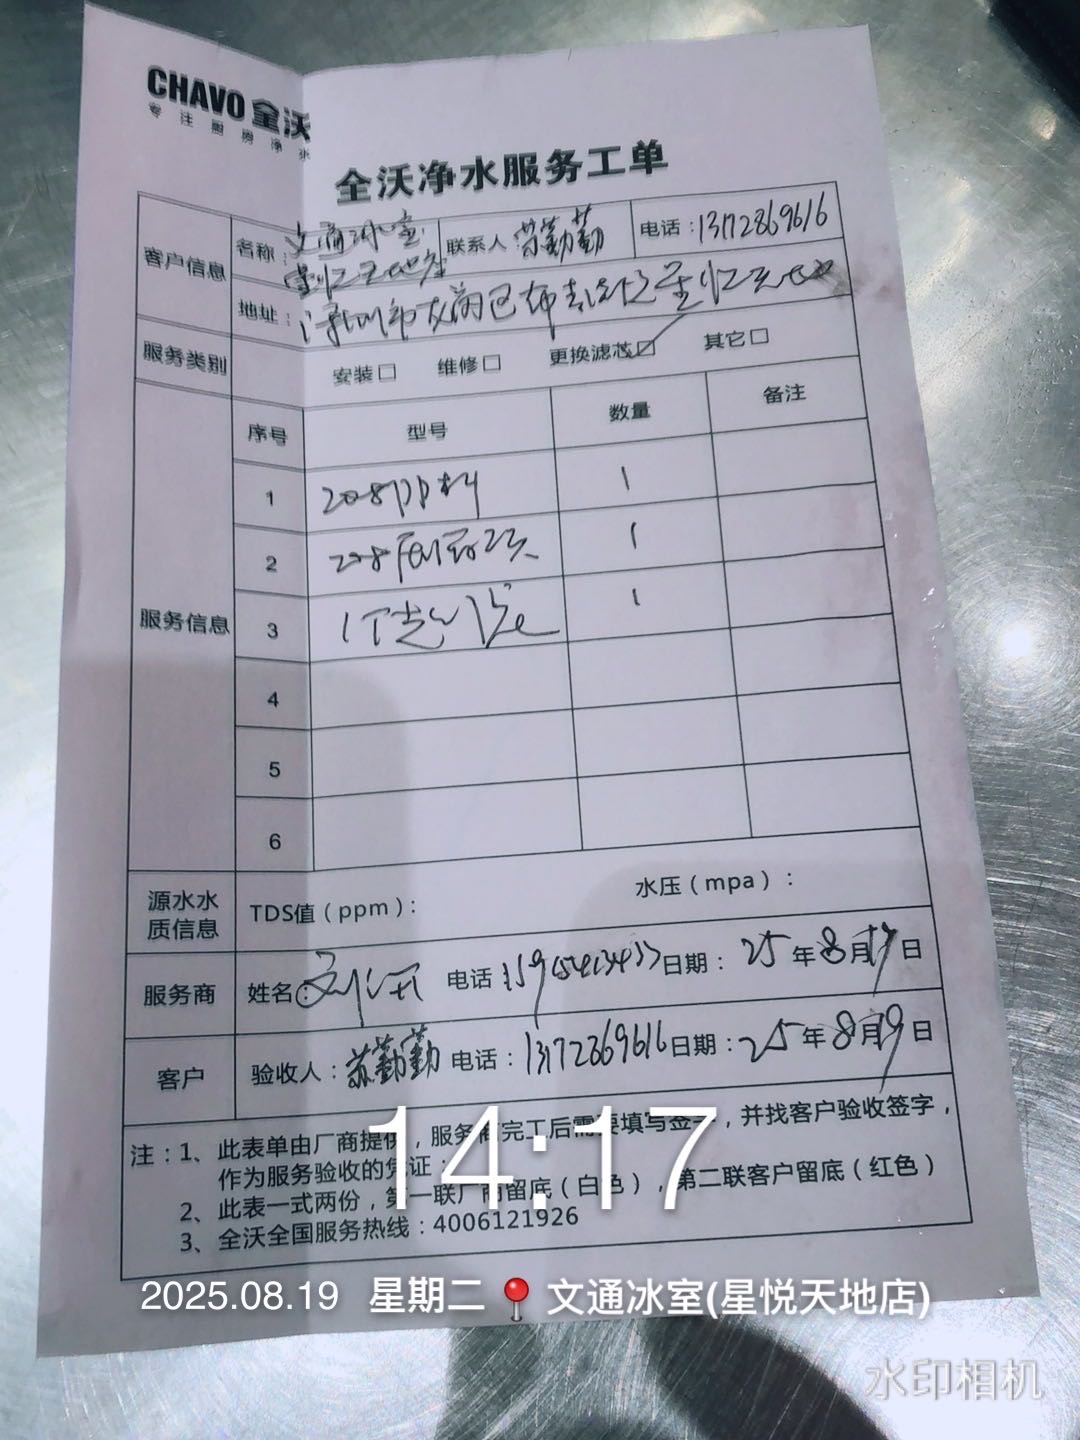 CHAVO 全沃
专注厨房净水
全沃净水服务工单
客户信息 名称: 文通冰室 星悦天地店 联系人 苏勤勤 电话: 13172869616
地址: 深圳市龙岗区布吉街道星悦天地
服务类别 安装□ 维修□ 更换滤芯☑ 其它□
服务信息 序号 型号 数量 备注
1 208PP棉 1
2 208 1
3 1个 1
4
5
6
源水水质信息 TDS值(ppm): 水压(mpa):
服务商 姓名: 刘 电话: 日期: 25年8月19日
客户 验收人: 苏勤勤 电话: 13172869616 日期: 25年8月19日
注:1、此表单由厂商提供,服务商完工后需要填写签字,并找客户验收签字,
作为服务验收的凭证;
2、此表一式两份,第一联厂商留底(白色),第二联客户留底(红色)
3、全沃全国服务热线:4006121926
14:17
2025.08.19 星期二 文通冰室(星悦天地店)
水印相机